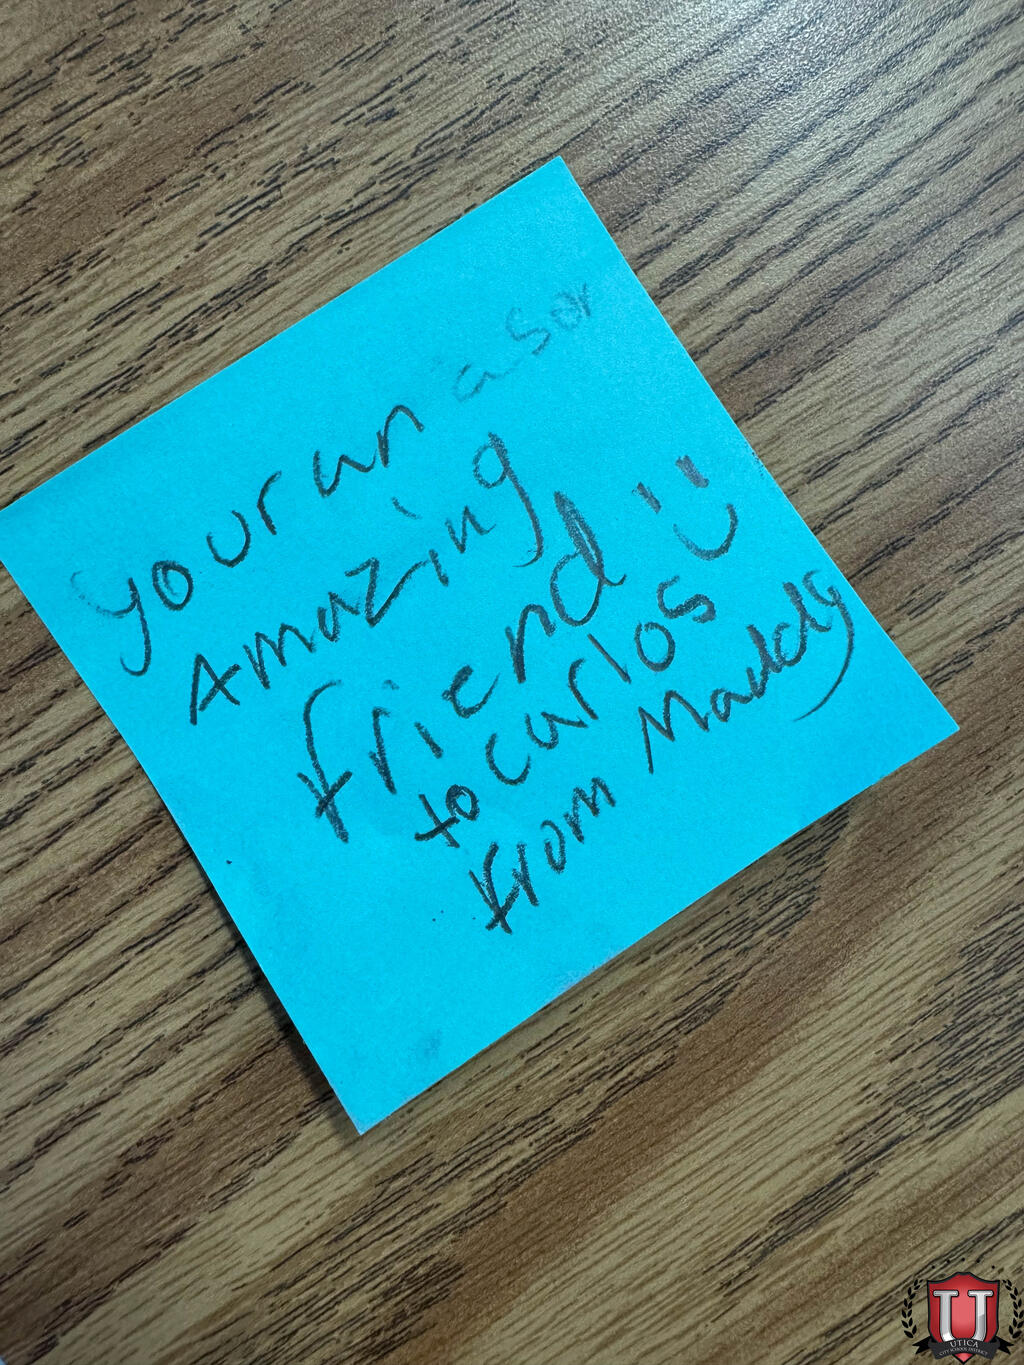 your an
Amazing
friend
to carlos
from Maddy
UTICA
CITY SCHOOL DISTRICT